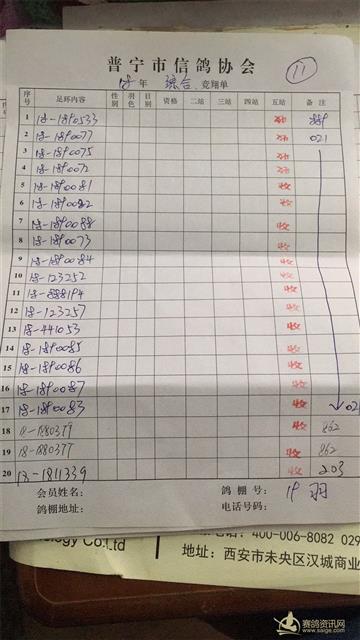 普宁市信鸽协会
11
18年 综合 竞翔单
序号 足环内容 性别 羽色 目别 资格 二站 三站 四站 五站 备注
1 18-1890533
2 18-1890077 021
3 18-1890075
4 18-1890072
5 18-1890081 收
6 18-1890082 收
7 18-1890088 收
8 18-1890073 收
9 18-1890084 收
10 18-123252 收
11 18-888194 收
12 18-123257 收
13 18-441053 收
14 18-1890085 收
15 18-1890086 收
16 18-1890087 收
17 18-1890083 收 021
18 18-1880379 收 862
19 18-1880377 收 862
20 18-1811339 收 203
会员姓名: 鸽棚号: 18羽
鸽棚地址: 电话号码:
ology Co.Ltd
电话: 400-006-8082 029
地址: 西安市未央区汉城商业
赛鸽资讯网
www.saige.com